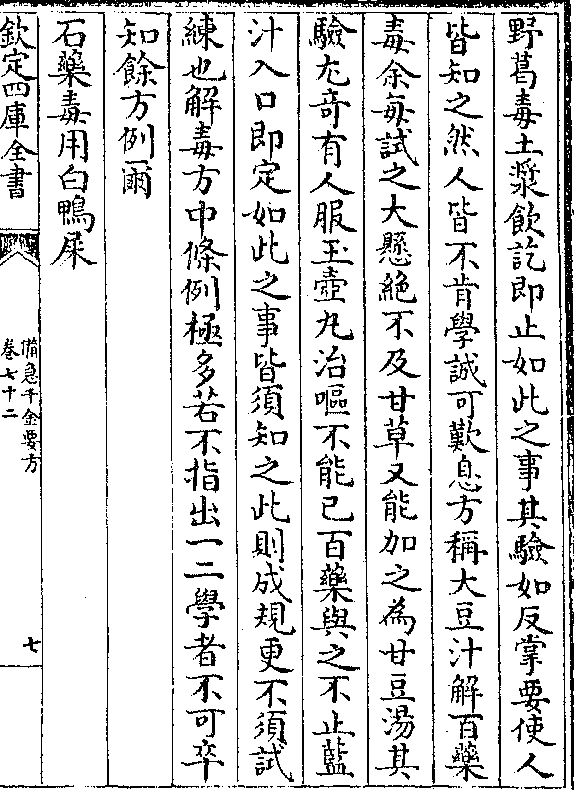 野葛毒土漿飲訖即止如此之事其驗如反掌要使人
皆知之然人皆不肯學誠可歎息方稱大豆汁解百藥
毒余每試之大懸絶不及甘草又能加之為甘豆湯其
驗尤奇有人服玉壺丸治嘔不能已百藥與之不止藍
汁入口即定如此之事皆須知之此則成規更不須試
練也解毒方中條例極多若不指出一二學者不可卒
知餘方例爾
石藥毒用白鴨屎
欽定四庫全書
備急千金要方
卷七十二
七